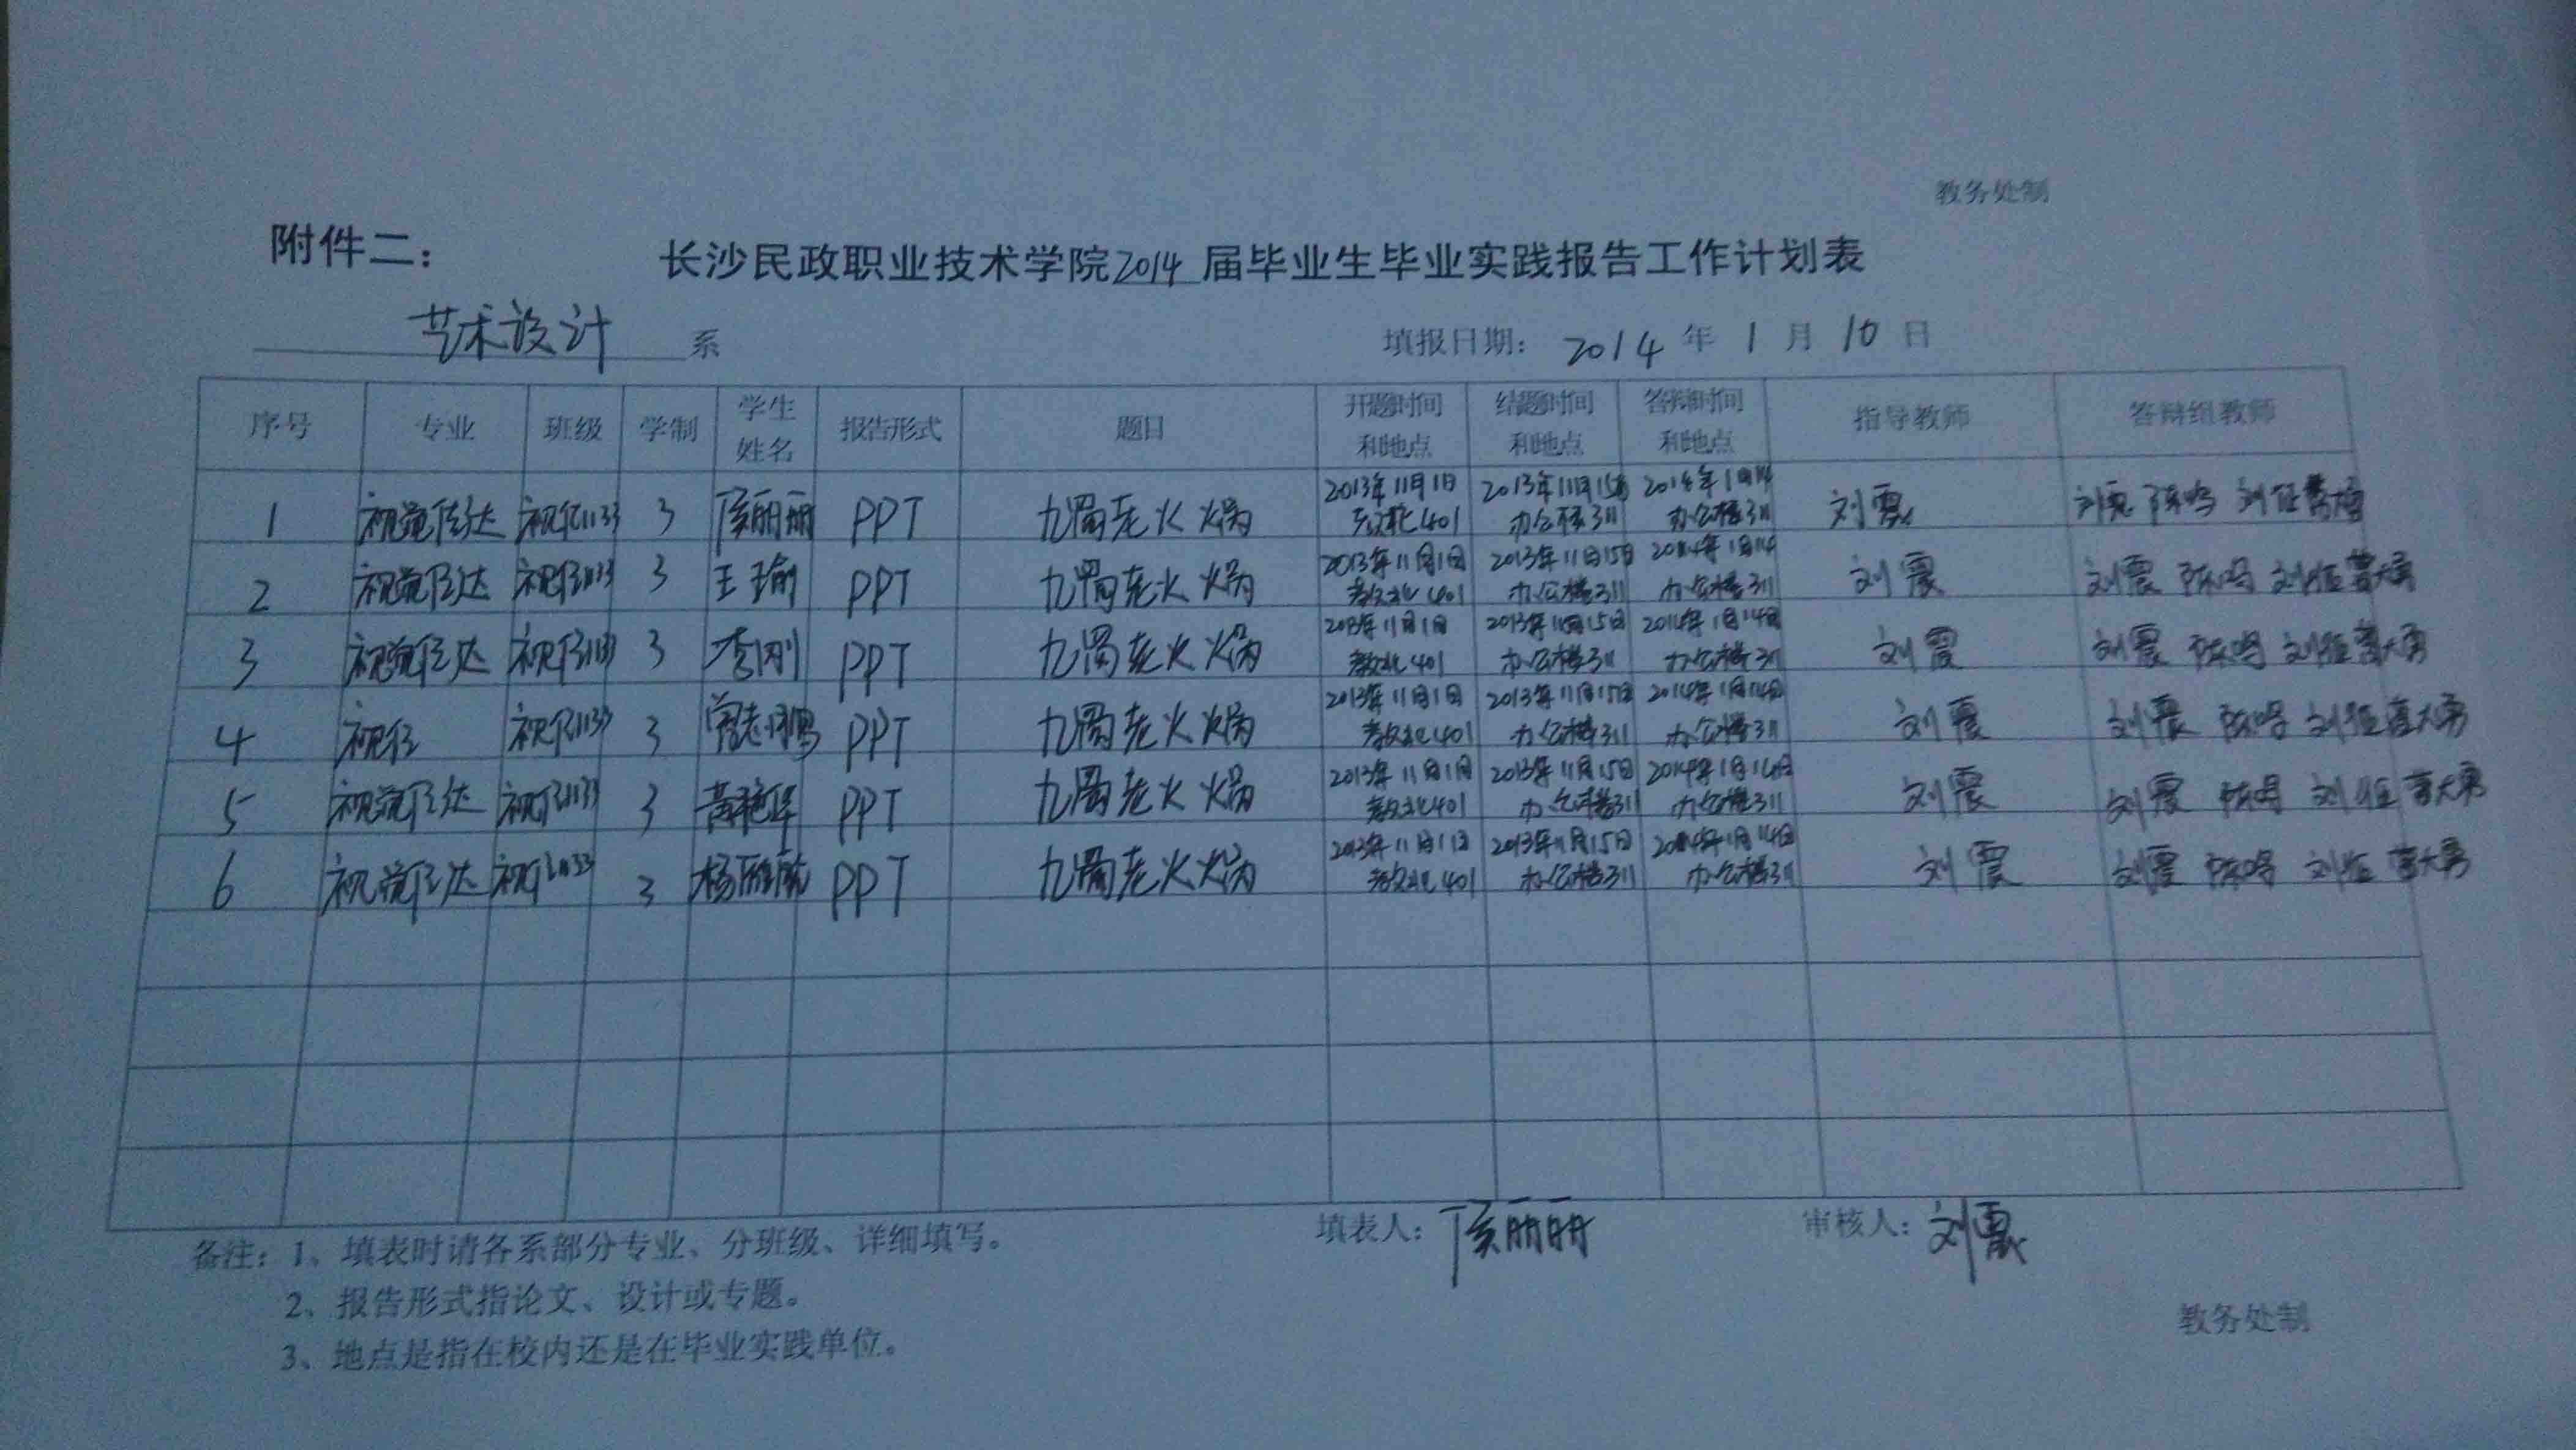 教务处制
附件二：
长沙民政职业技术学院2014届毕业生毕业实践报告工作计划表
艺术设计 系 填报日期： 2014 年 1 月 10 日
序号 专业 班级 学制 学生姓名 报告形式 题目 开题时间和地点 结题时间和地点 答辩时间和地点 指导教师 答辩组教师
1 视觉传达 视传1133 3 侯丽丽 PPT 老火火锅 2013年11月1日 401 2013年11月15日 办公楼311 2014年1月14 办公楼311 刘震 刘震 陈鸣
2 视觉传达 视传1133 3 王瑜 PPT 老火火锅 2013年11月1日 教北401 2013年11月15日 办公楼311 2014年1月14 办公楼311 刘震 刘震 陈鸣
3 视觉传达 视传1133 3 李刚 PPT 老火火锅 2013年11月1日 教北401 2013年11月15日 办公楼311 2014年1月14日 办公楼311 刘震 刘震 陈鸣
4 视传 视传1133 3 PPT 老火火锅 2013年11月1日 教北401 2013年11月15日 办公楼311 2014年1月14日 办公楼311 刘震 刘震 陈鸣
5 视觉传达 视传1133 3 黄艳华 PPT 老火火锅 2013年11月1日 教北401 2013年11月15日 办公楼311 2014年1月14日 办公楼311 刘震 刘震 陈鸣
6 视觉传达 视传1133 3 PPT 老火火锅 2013年11月1日 教北401 2013年11月15日 办公楼311 2014年1月14日 办公楼311 刘震 刘震 陈鸣
备注：1、填表时请各系部分专业、分班级、详细填写。 填表人：侯丽丽 审核人：刘震
2、报告形式指论文、设计或专题。
3、地点是指在校内还是在毕业实践单位。
教务处制